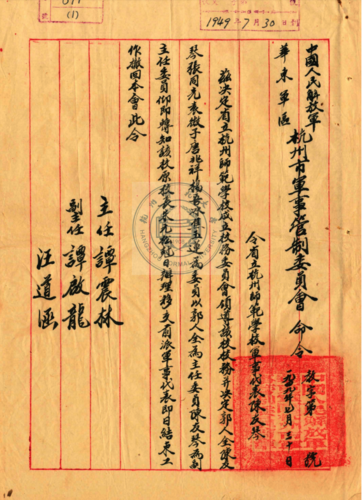 (1)
1949年7月30日
中國人民解放軍
華東軍區
杭州市軍事管制委員會 命令
教字第 號
一九四九年七月三十日
令省立杭州師範學校軍事代表陳友琴
茲決定省立杭州師範學校成立校務委員會領導該校校務并決定郭人全陳友
琴張同光袁微子唐兆祥楊 為委員以郭人全為主任委員陳友琴為副
主任委員仰即轉知該校原校長 日辦理移交前派軍事代表即日結束工
作撤回本會此令
主任 譚震林
副主任 譚啟龍
汪道涵